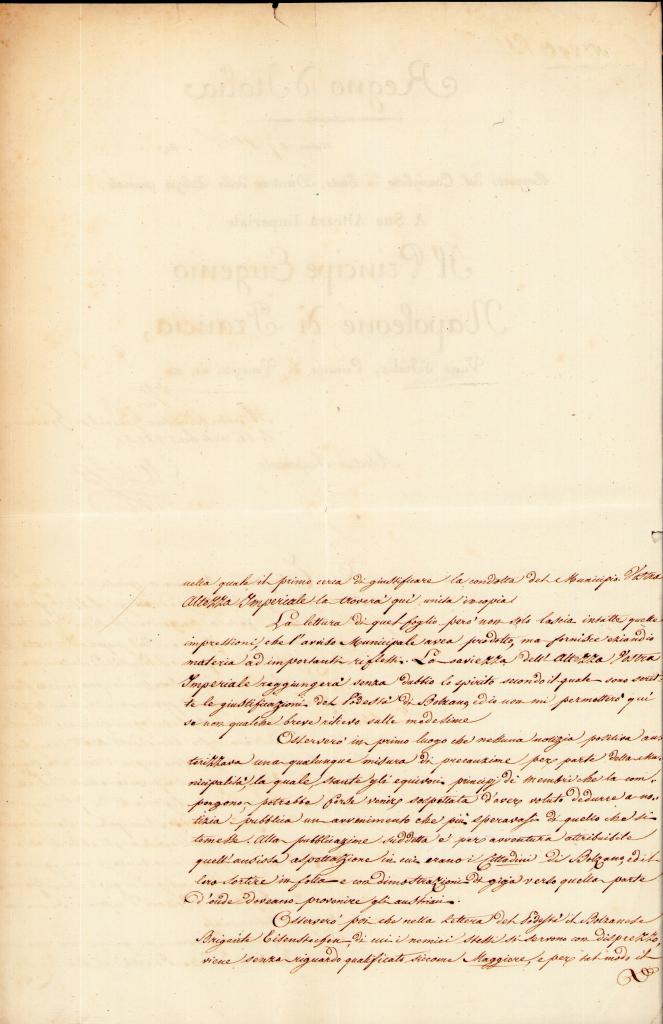 nella quale il primo cerca di giustificare la condotta del Municipio. Vostra
Altezza Imperiale la troverà quì unita in copia
La lettura di quel foglio però non solo lascia intatte quelle
impressioni, che l'avviso Municipale avea prodotto, ma fornisce eziandio
materia ad importanti riflessi. La saviezza dell'Altezza Vostra
Imperiale raggiungerà senza dubbio lo spirito secondo il quale sono scrit-
te le giustificazioni del Podestà di Bolzano, ed io non mi permetterò quì
se non qualche breve rilievo sulle medesime
Osserverò in primo luogo che nessuna notizia positiva au-
torizzava una qualunque misura di precauzione per parte della Mu-
nicipalità, la quale, stante gli equivoci principj de' membri che la com-
pongono potrebbe forse venire sospettata d'aver voluto dedurre a no-
tizia pubblica un avvenimento che più speravasi di quello che si
temesse. Alla pubblicazione suddetta è per avventura attribuibile
quell'ansiosa aspettazione in cui erano i Cittadini di Bolzano, ed il
loro sortire in folla e con dimostrazioni di gioja verso quella parte
d'onde doveano provenire gli austriaci.
Osserverò poi che nella lettera del Podestà il Bolzanese
Brigante Eisenstecken di cui i nemici stessi si servono con disprezzo,
viene senza riguardo qualificato siccome Maggiore, e per tal modo il
Regno d'Italia
A Sua Altezza Imperiale
Il Principe Eugenio
Napoleone di Francia,